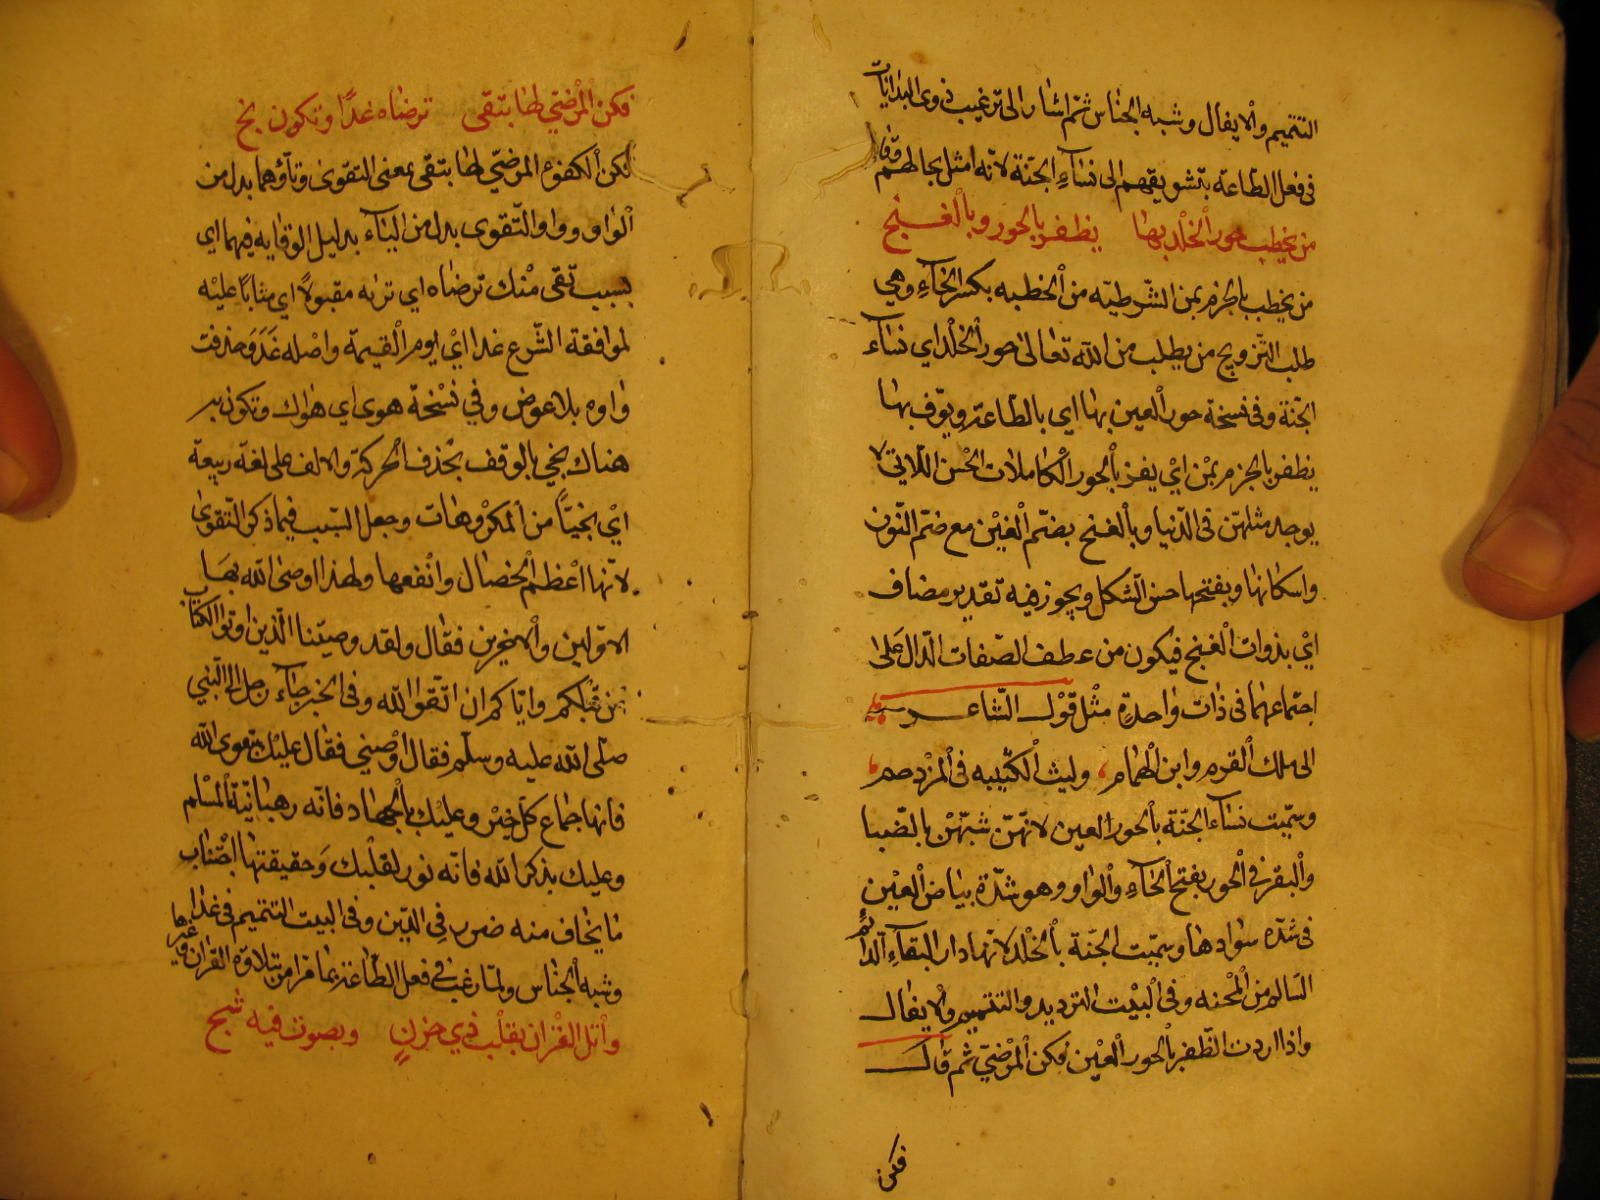 التتميم والايغال وشبه الجناس ثم اشار الى ترغيب ذوى البدايات
فى فعل الطاعة بتشويقهم الى نسآء الجنة لانه امثل بحالهم فقال
من يخطب حور الخلد بها يظفر بالحور وبالغنج
من يخطب بالجزم بمن الشرطيه من الخطبه بكسر الخآء وهي
طلب التزويج من يطلب من الله تعالى حور الخلد اي نسآء
الجنة وفى نسخة حور العين بها اي بالطاعة
يظفر بالجزم بمن اي يفز بالحور الكاملات الحسن اللاتي لا
يوجد مثلهن فى الدنيا وبالغنج بضم الغين مع ضم النون
واسكانها وبفتحها حسن الشكل ويجوز فيه تقدير مضاف
اي بذوات الغنج فيكون من عطف الصفات الدال على
اجتماعهما فى ذات واحدة مثل قول الشاعر
الى ملك القرم وابن الهمام وليث الكتيبه فى المزدحم
وسميت نسآء الجنة بالحور العين لانهن شبهن بالضبا
والبقر فى الحور بفتح الحآء والواو وهو شدة بياض العين
فى شده سوادها وسميت الجنة بالخلد لانها دار البقآء الدائم
السالم من المحنه وفى البيت الترديد والتتميم والايغال
واذا اردت الظفر بالحور العين فكن المرضي ثم قال
فكن
فكن المرضي لها بتقى ترضاه غدا وتكون نج
لكن الكفوء المرضي لها بتقى بمعنى التقوى وتآؤهما بدل من
الواو وواو التقوى بدل من اليآء بدليل الوقايه فيهما اي
بسبب تقى منك ترضاه اي تراه مقبولا اي مثابا عليه
لموافقة الشرع غدا اي يوم القيمة واصله غدو حذفت
واوه بلا عوض وفي نسخة هوى اي هواك وتكون
هناك نجي بالوقف بحذف الحركة والالف على لغة ربيعة
اي نجيا من المكروهات وجعل السبب فيما ذكر التقوى
لانها اعظم الخصال وانفعها ولهذا اوصى الله بها
الاولين والاخرين فقال ولقد وصينا الذين اوتوا الكتاب
من قبلكم واياكم ان اتقوا الله وفى الخبر جآء رجل الى النبي
صلى الله عليه وسلم فقال اوصني فقال عليك بتقوى الله
فانها جماع كل خير وعليك بالجهاد فانه رهبانية المسلم
وعليك بذكر الله فانه نور لقلبك وحقيقتها اجتناب
ما يخاف منه ضرر في الدين وفى البيت التتميم فى غدا
وشبه الجناس ولما رغب في فعل الطاعة بما مر امر بتلاوة القران وغيرها
واتل القران بقلب ذي حزن وبصوت فيه شج